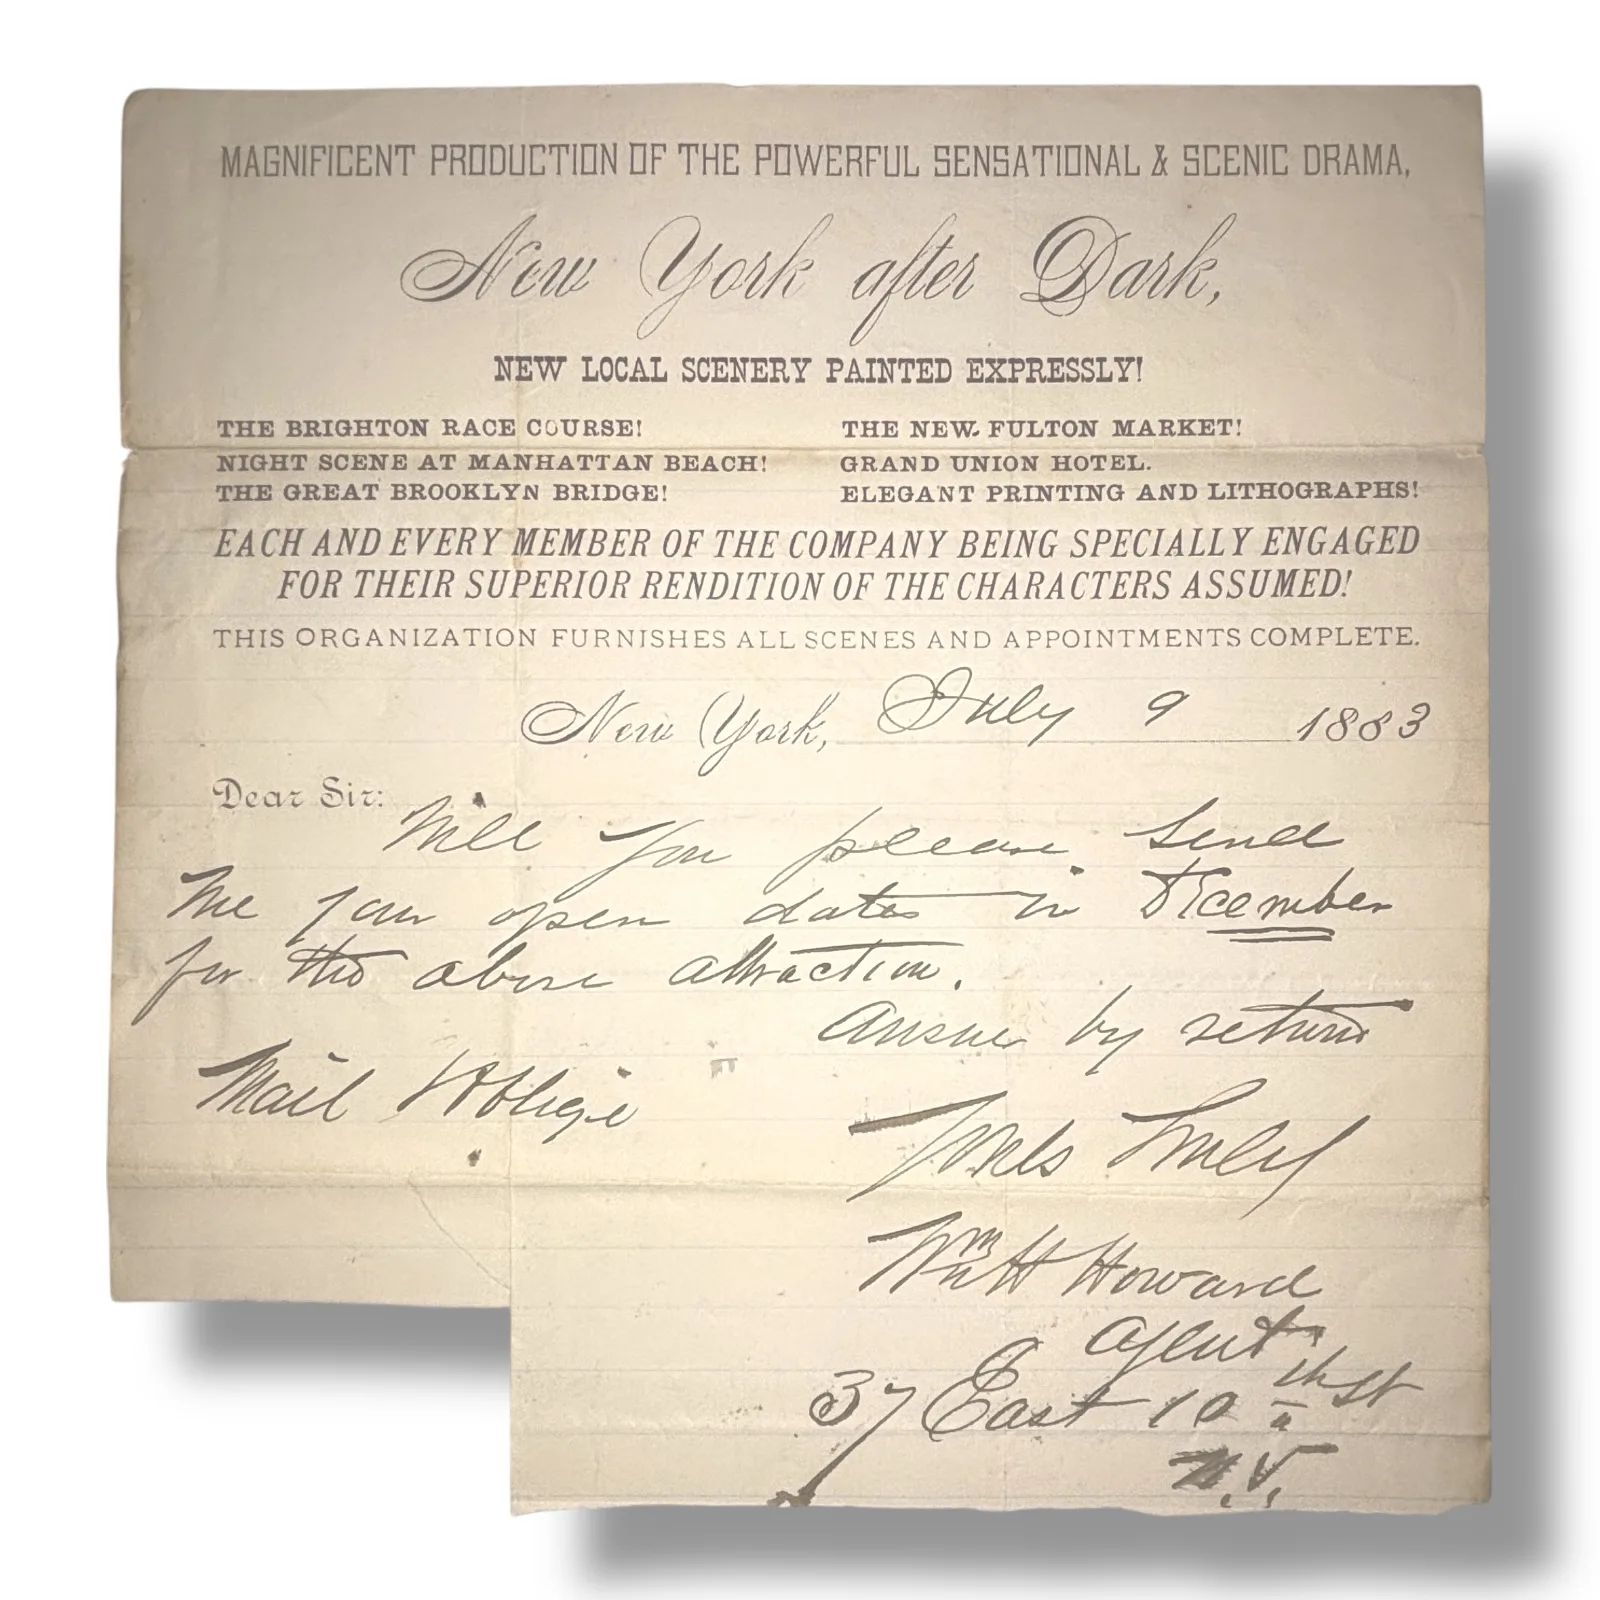 MAGNIFICENT PRODUCTION OF THE POWERFUL SENSATIONAL & SCENIC DRAMA,
New York after Dark,
NEW LOCAL SCENERY PAINTED EXPRESSLY!
THE BRIGHTON RACE COURSE!
NIGHT SCENE AT MANHATTAN BEACH!
THE GREAT BROOKLYN BRIDGE!
THE NEW FULTON MARKET!
GRAND UNION HOTEL.
ELEGANT PRINTING AND LITHOGRAPHS!
EACH AND EVERY MEMBER OF THE COMPANY BEING SPECIALLY ENGAGED
FOR THEIR SUPERIOR RENDITION OF THE CHARACTERS ASSUMED!
THIS ORGANIZATION FURNISHES ALL SCENES AND APPOINTMENTS COMPLETE.
New York, July 9 1883
Dear Sir:
Will you please send
me your open dates in December
for the above attraction.
Answer by return
Mail & Oblige
Yours Truly
Wm Howard
Agent
37 East 10th st
N.Y.